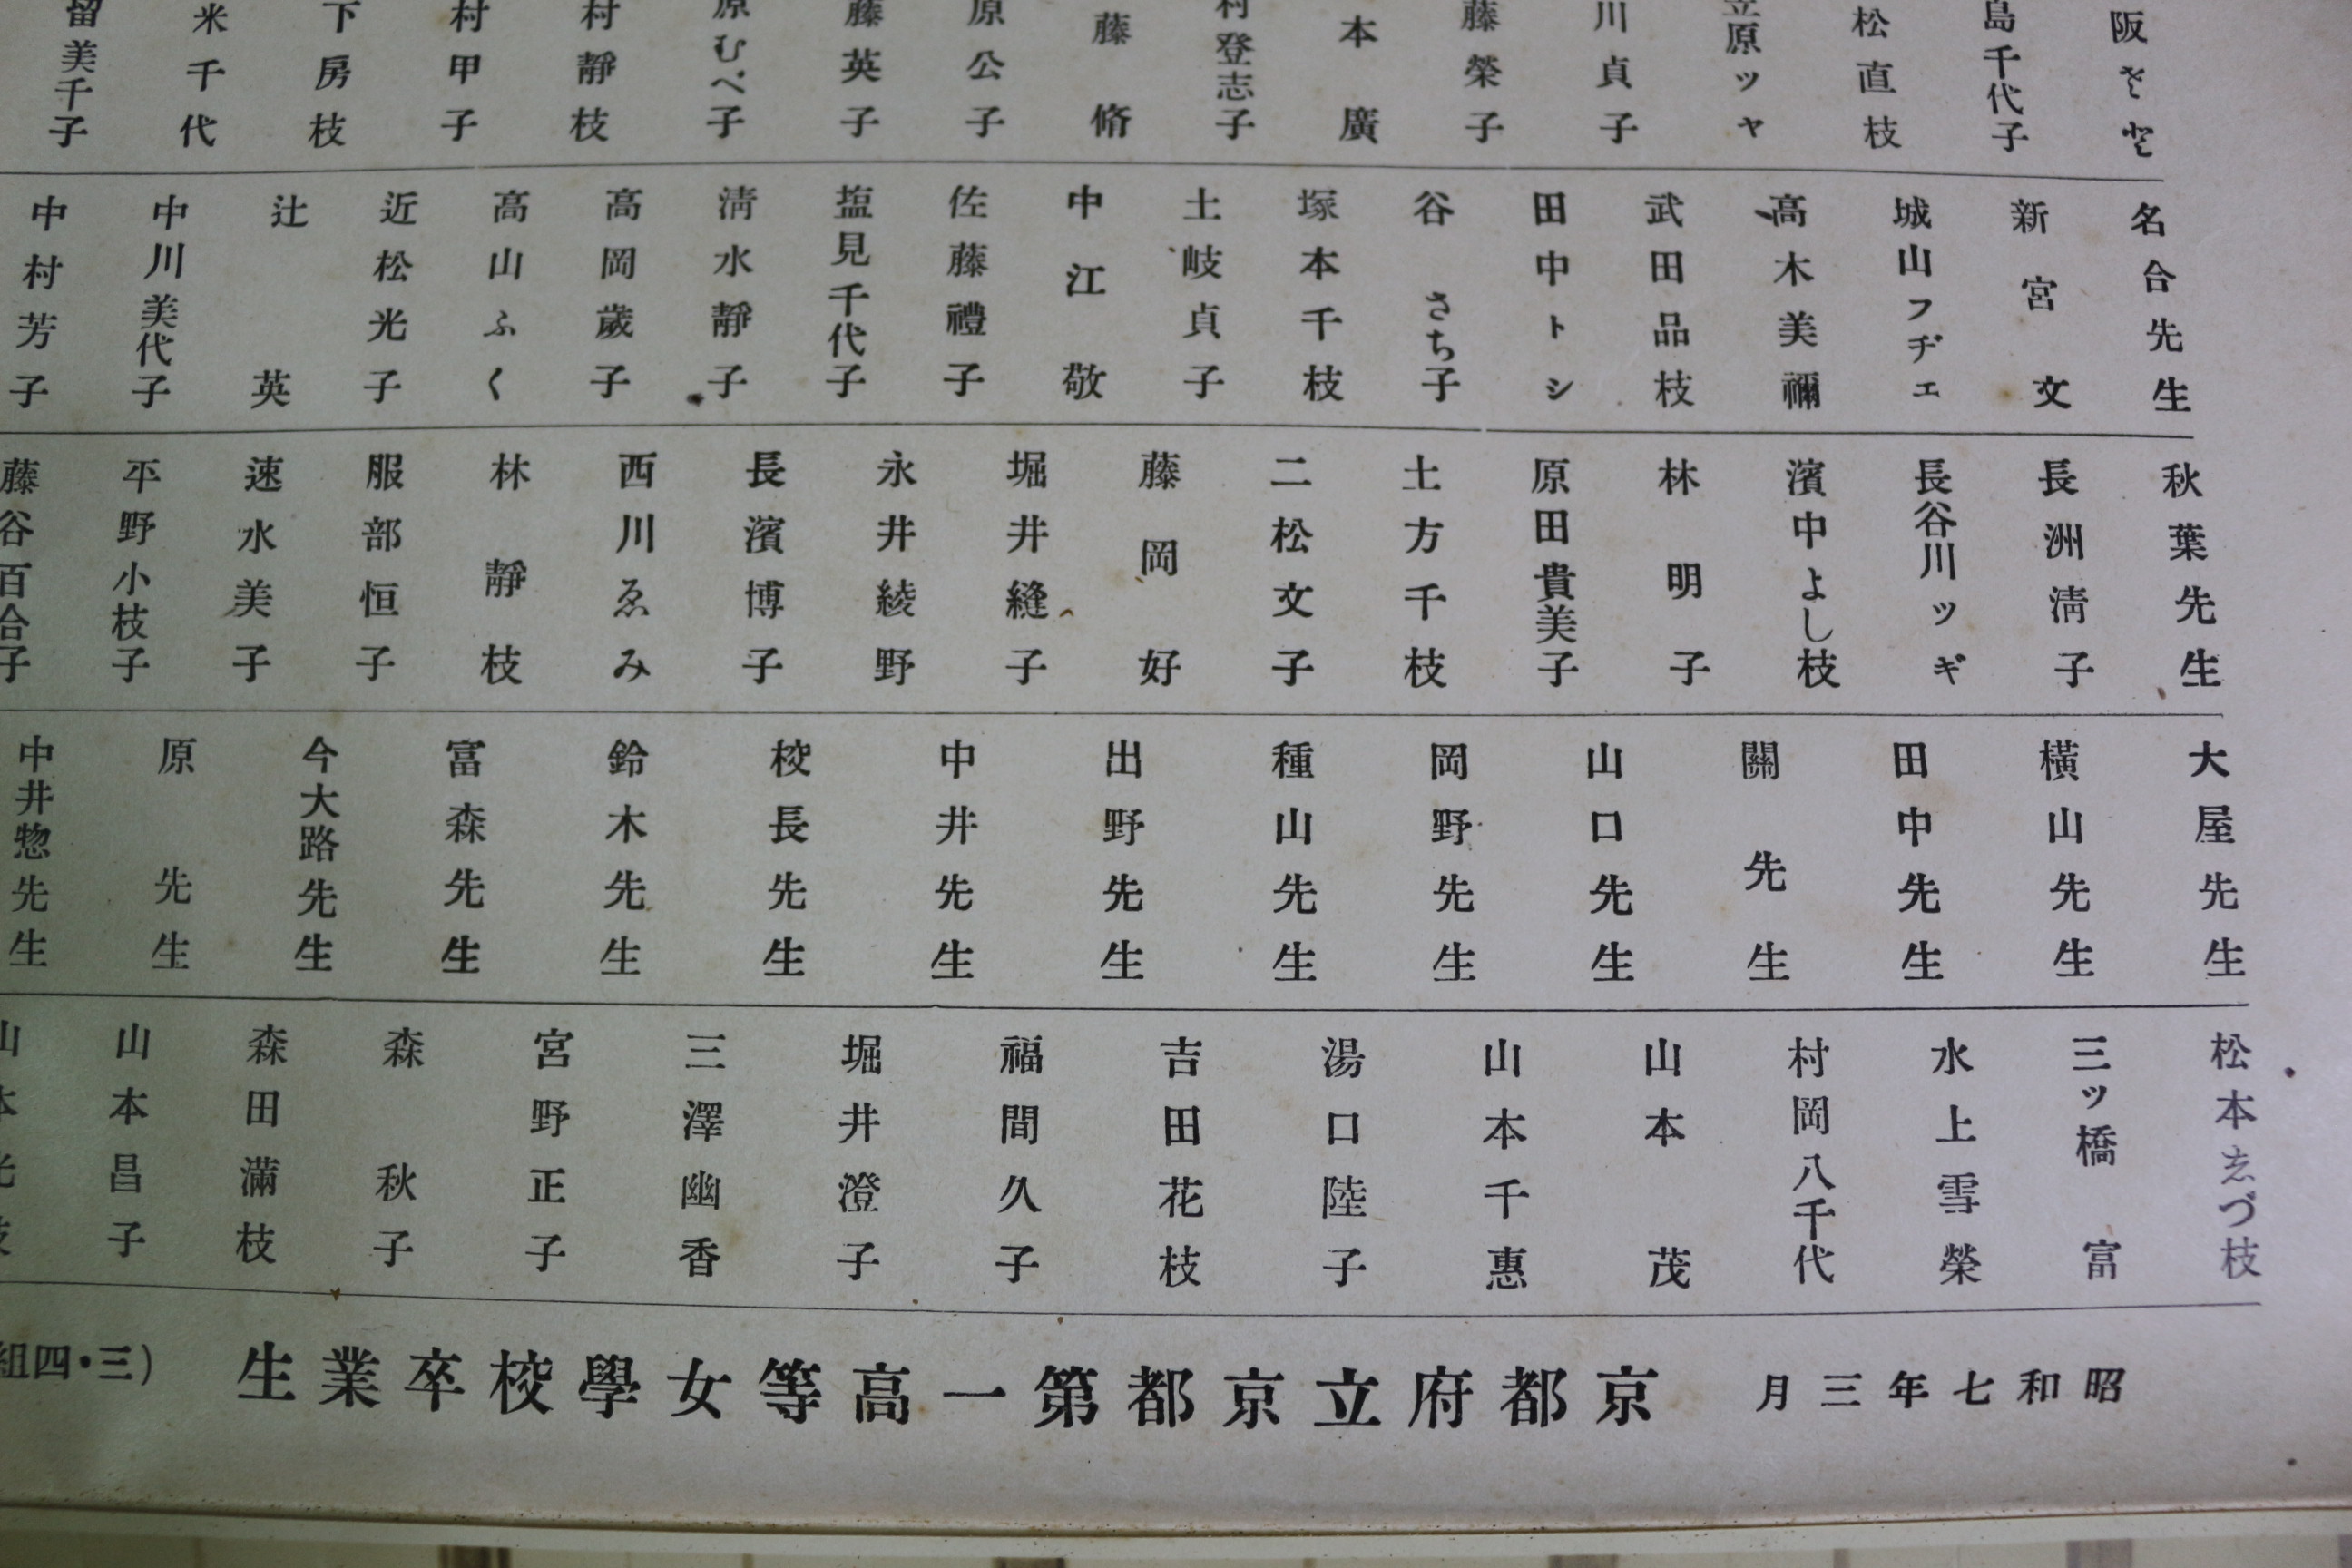 阪
島千代子
松直枝
立原ツヤ
川貞子
藤榮子
本廣
村登志子
藤脩
原公子
藤英子
原むべ子
村靜枝
村甲子
下房枝
米千代
留美千子
名合先生
新宮文
城山フヂエ
高木美禰
武田品枝
田中トシ
谷さち子
塚本千枝
土岐貞子
中江敬
佐藤禮子
塩見千代子
淸水靜子
高岡歲子
高山ふく
近松光子
辻英
中川美代子
中村芳子
秋葉先生
長洲淸子
長谷川ツギ
濱中よし枝
林明子
原田貴美子
土方千枝
二松文子
藤岡好
堀井縫子
永井綾野
長濱博子
西川ゑみ
林靜枝
服部恒子
速水美子
平野小枝子
藤谷百合子
大屋先生
橫山先生
田中先生
關先生
山口先生
岡野先生
種山先生
出野先生
中井先生
校長先生
鈴木先生
富森先生
今大路先生
原先生
中井惣先生
松本志づ枝
三ッ橋富
水上雪榮
村岡八千代
山本茂
山本千惠
湯口陸子
吉田花枝
福間久子
堀井澄子
三澤幽香
宮野正子
森秋子
森田滿枝
山本昌子
山本光枝
昭和七年三月 京都府立京都第一高等女學校卒業生 (三・四組